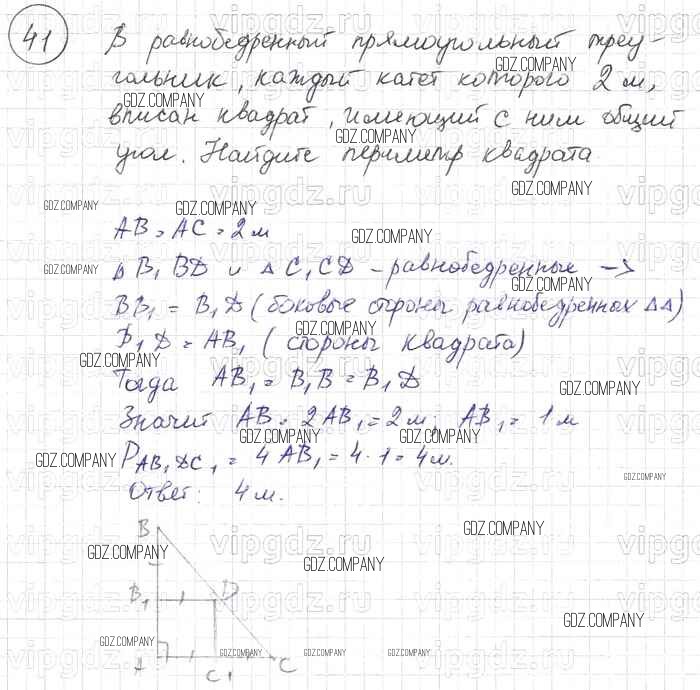 41
В равнобедренный прямоугольный треу-
гольник, каждый катет которого 2 м,
вписан квадрат, имеющий с ним общий
угол. Найдите периметр квадрата
AB = AC = 2 м
Δ B₁BD и Δ C₁CD - равнобедренные →
BB₁ = B₁D (боковые стороны равнобедренных ΔΔ)
B₁D = AB₁ (стороны квадрата)
Тогда AB₁ = B₁B = B₁D
Значит AB = 2AB₁ = 2 м; AB₁ = 1 м
P AB₁DC₁ = 4AB₁ = 4·1 = 4 м.
Ответ: 4 м.
B
B₁ D
A C₁ C
GDZ.COMPANY
vipgdz.ru